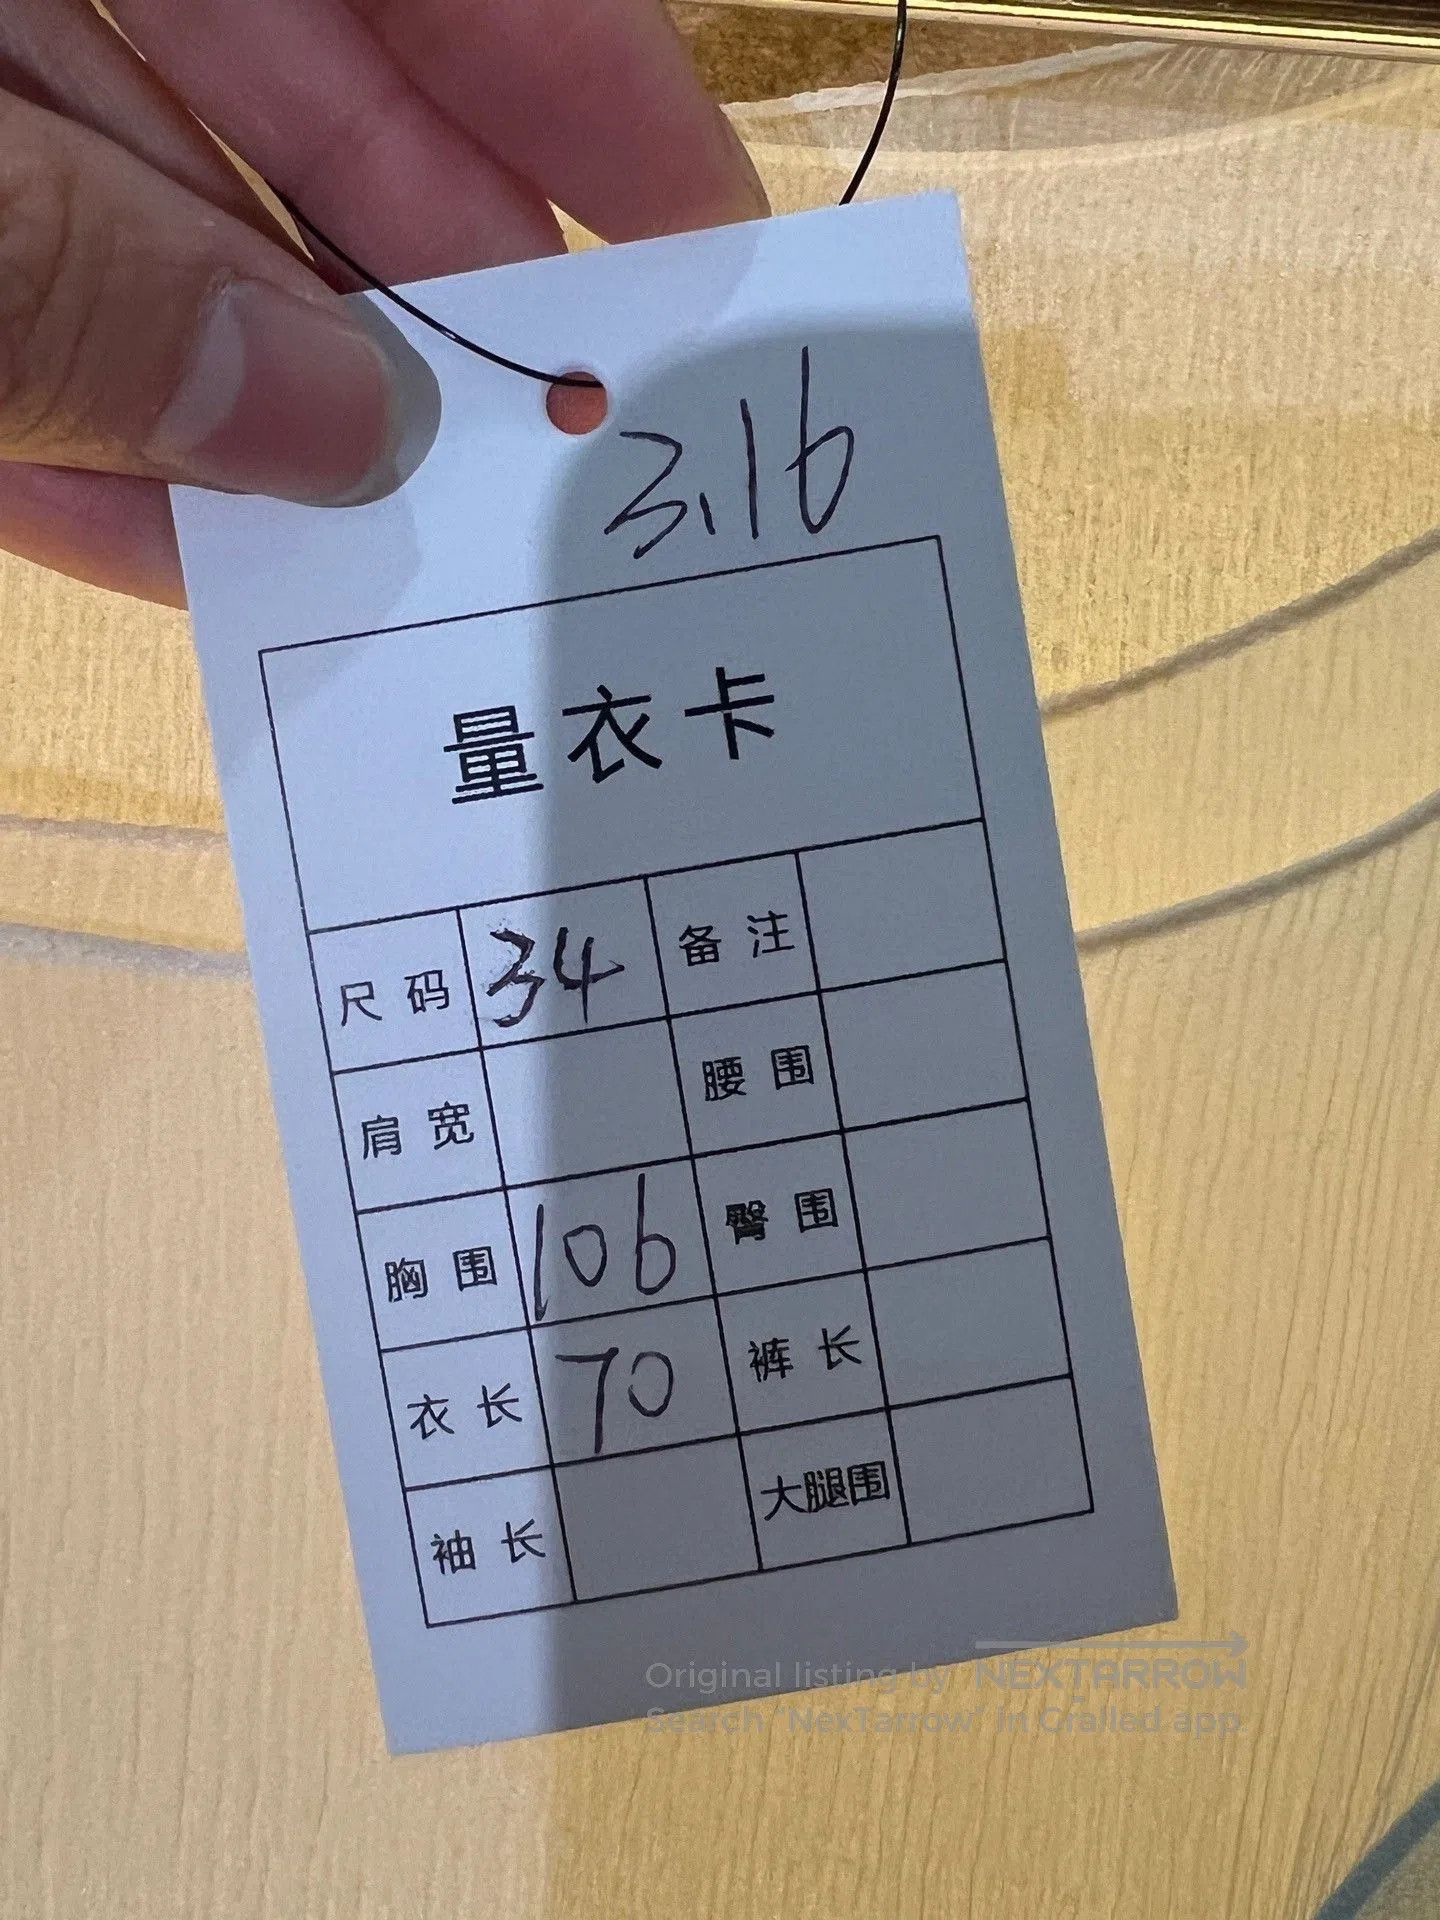 3.16
量衣卡
尺码 34 备注
肩宽 腰围
胸围 106 臀围
衣长 70 裤长
袖长 大腿围
Original listing by NEXTARROW
Search "NexTarrow" in Grailed app.